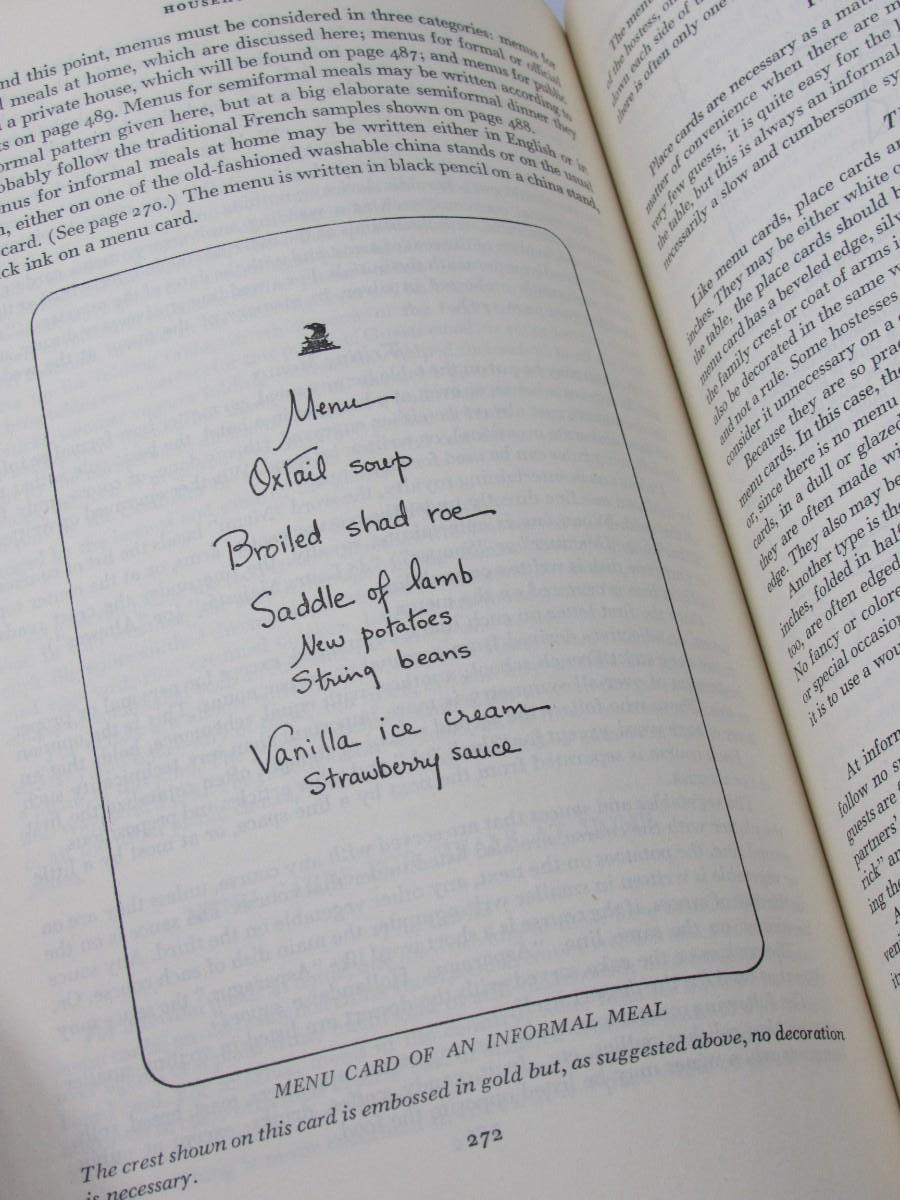 HOUSE
nd this point, menus must be considered in three categories: menus for
l meals at home, which are discussed here; menus for formal or official
a private house, which will be found on page 487; and menus for public
ts on page 489. Menus for semiformal meals may be written according to
ormal pattern given here, but at a big elaborate semiformal dinner they
obably follow the traditional French samples shown on page 488.
nus for informal meals at home may be written either in English or in
h, either on one of the old-fashioned washable china stands or on the usual
card. (See page 270.) The menu is written in black pencil on a china stand,
ck ink on a menu card.
Menu
Oxtail soup
Broiled shad roe
Saddle of lamb
New potatoes
String beans
Vanilla ice cream
Strawberry sauce
MENU CARD OF AN INFORMAL MEAL
The crest shown on this card is embossed in gold but, as suggested above, no decoration
is necessary.
272
The menu
of the hostess, or
down each side of t
there is often only one
Place cards are necessary as a mat
matter of convenience when there are m
very few guests, it is quite easy for the h
the table, but this is always an informal
necessarily a slow and cumbersome sy
T
Like menu cards, place cards ar
inches. They may be either white o
the table, the place cards should b
menu card has a beveled edge, silv
the family crest or coat of arms i
also be decorated in the same w
and not a rule. Some hostesses
consider it unnecessary on a
Because they are so prac
menu cards. In this case, the
or, since there is no menu
cards, in a dull or glazed
they are often made wi
edge. They also may be
Another type is the
inches, folded in half
too, are often edged
No fancy or colore
or special occasion
it is to use a wou
At inform
follow no s
guests are
partners'
rick" an
ing the
A
ven
it